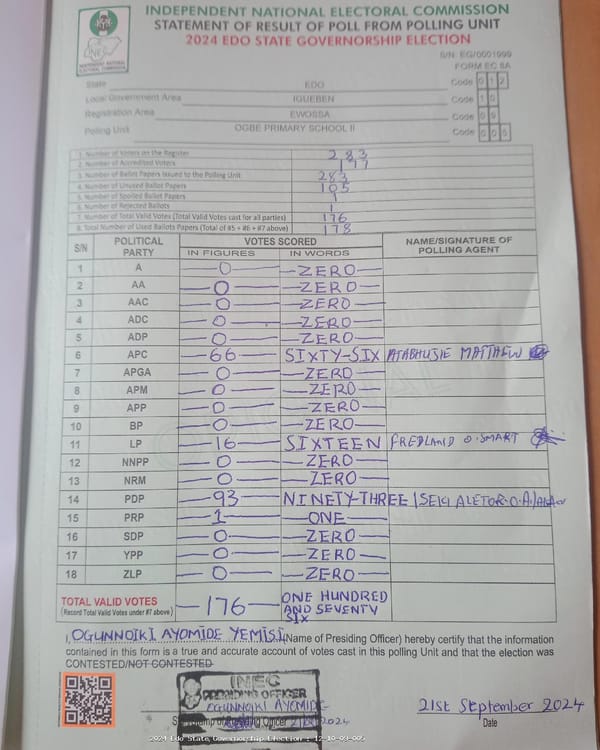 INDEPENDENT NATIONAL ELECTORAL COMMISSION
STATEMENT OF RESULT OF POLL FROM POLLING UNIT
2024 EDO STATE GOVERNORSHIP ELECTION
S/N: EG/0001099
FORM EC 8A
State EDO Code 0 1 2
Local Government Area IGUEBEN Code 1 0
Registration Area EWOSSA Code 0 9
Polling Unit OGBE PRIMARY SCHOOL II Code 0 0 5
1. Number of Voters on the Register 283
2. Number of Accredited Voters 177
3. Number of Ballot Papers Issued to the Polling Unit 283
4. Number of Unused Ballot Papers 105
5. Number of Spoiled Ballot Papers 1
6. Number of Rejected Ballots 1
7. Number of Total Valid Votes (Total Valid Votes cast for all parties) 176
8. Total Number of Used Ballots Papers (Total of #5 + #6 + #7 above) 178
S/N POLITICAL PARTY VOTES SCORED NAME/SIGNATURE OF POLLING AGENT
IN FIGURES IN WORDS
1 A 0 ZERO
2 AA 0 ZERO
3 AAC 0 ZERO
4 ADC 0 ZERO
5 ADP 0 ZERO
6 APC 66 SIXTY-SIX MATTHEW
7 APGA 0 ZERO
8 APM 0 ZERO
9 APP 0 ZERO
10 BP 0 ZERO
11 LP 16 SIXTEEN FREDLAND O. SMART
12 NNPP 0 ZERO
13 NRM 0 ZERO
14 PDP 93 NINETY-THREE
15 PRP 1 ONE
16 SDP 0 ZERO
17 YPP 0 ZERO
18 ZLP 0 ZERO
TOTAL VALID VOTES 176 ONE HUNDRED
(Record Total Valid Votes under #7 above) AND SEVENTY
SIX
I, OGUNNOIKI AYOMIDE YEMISI (Name of Presiding Officer) hereby certify that the information
contained in this form is a true and accurate account of votes cast in this polling Unit and that the election was
CONTESTED/NOT CONTESTED
INEC
PRESIDING OFFICER
OGUNNOIKI AYOMIDE
21st September 2024
Date
2024 Edo State Governorship Election : 12-10-09-005